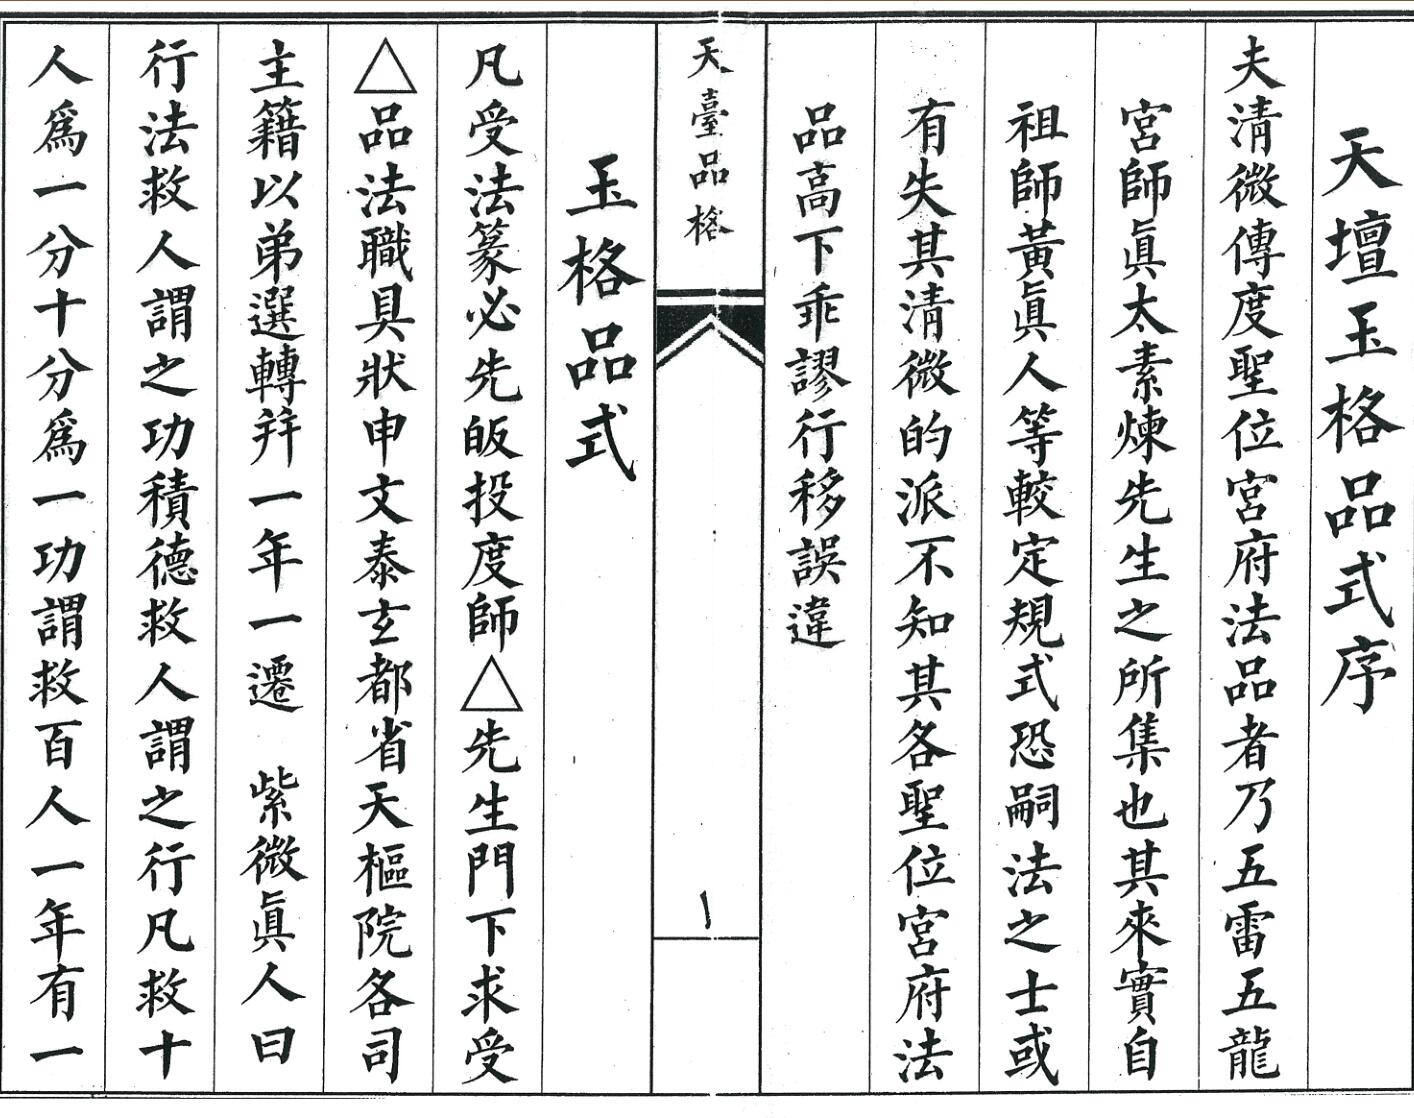 天壇玉格品式序
夫清微傳度聖位宮府法品者乃五雷五龍
宮師眞太素煉先生之所集也其來實自
祖師黃眞人等較定規式恐嗣法之士或
有失其清微的派不知其各聖位宮府法
品高下乖謬行移誤違
天臺品格
玉格品式
凡受法篆必先皈投度師△先生門下求受
△品法職具狀申文泰玄都省天樞院各司
主籍以弟選轉幷一年一遷 紫微眞人曰
行法救人謂之功積德救人謂之行凡救十
人爲一分十分爲一功謂救百人一年有一